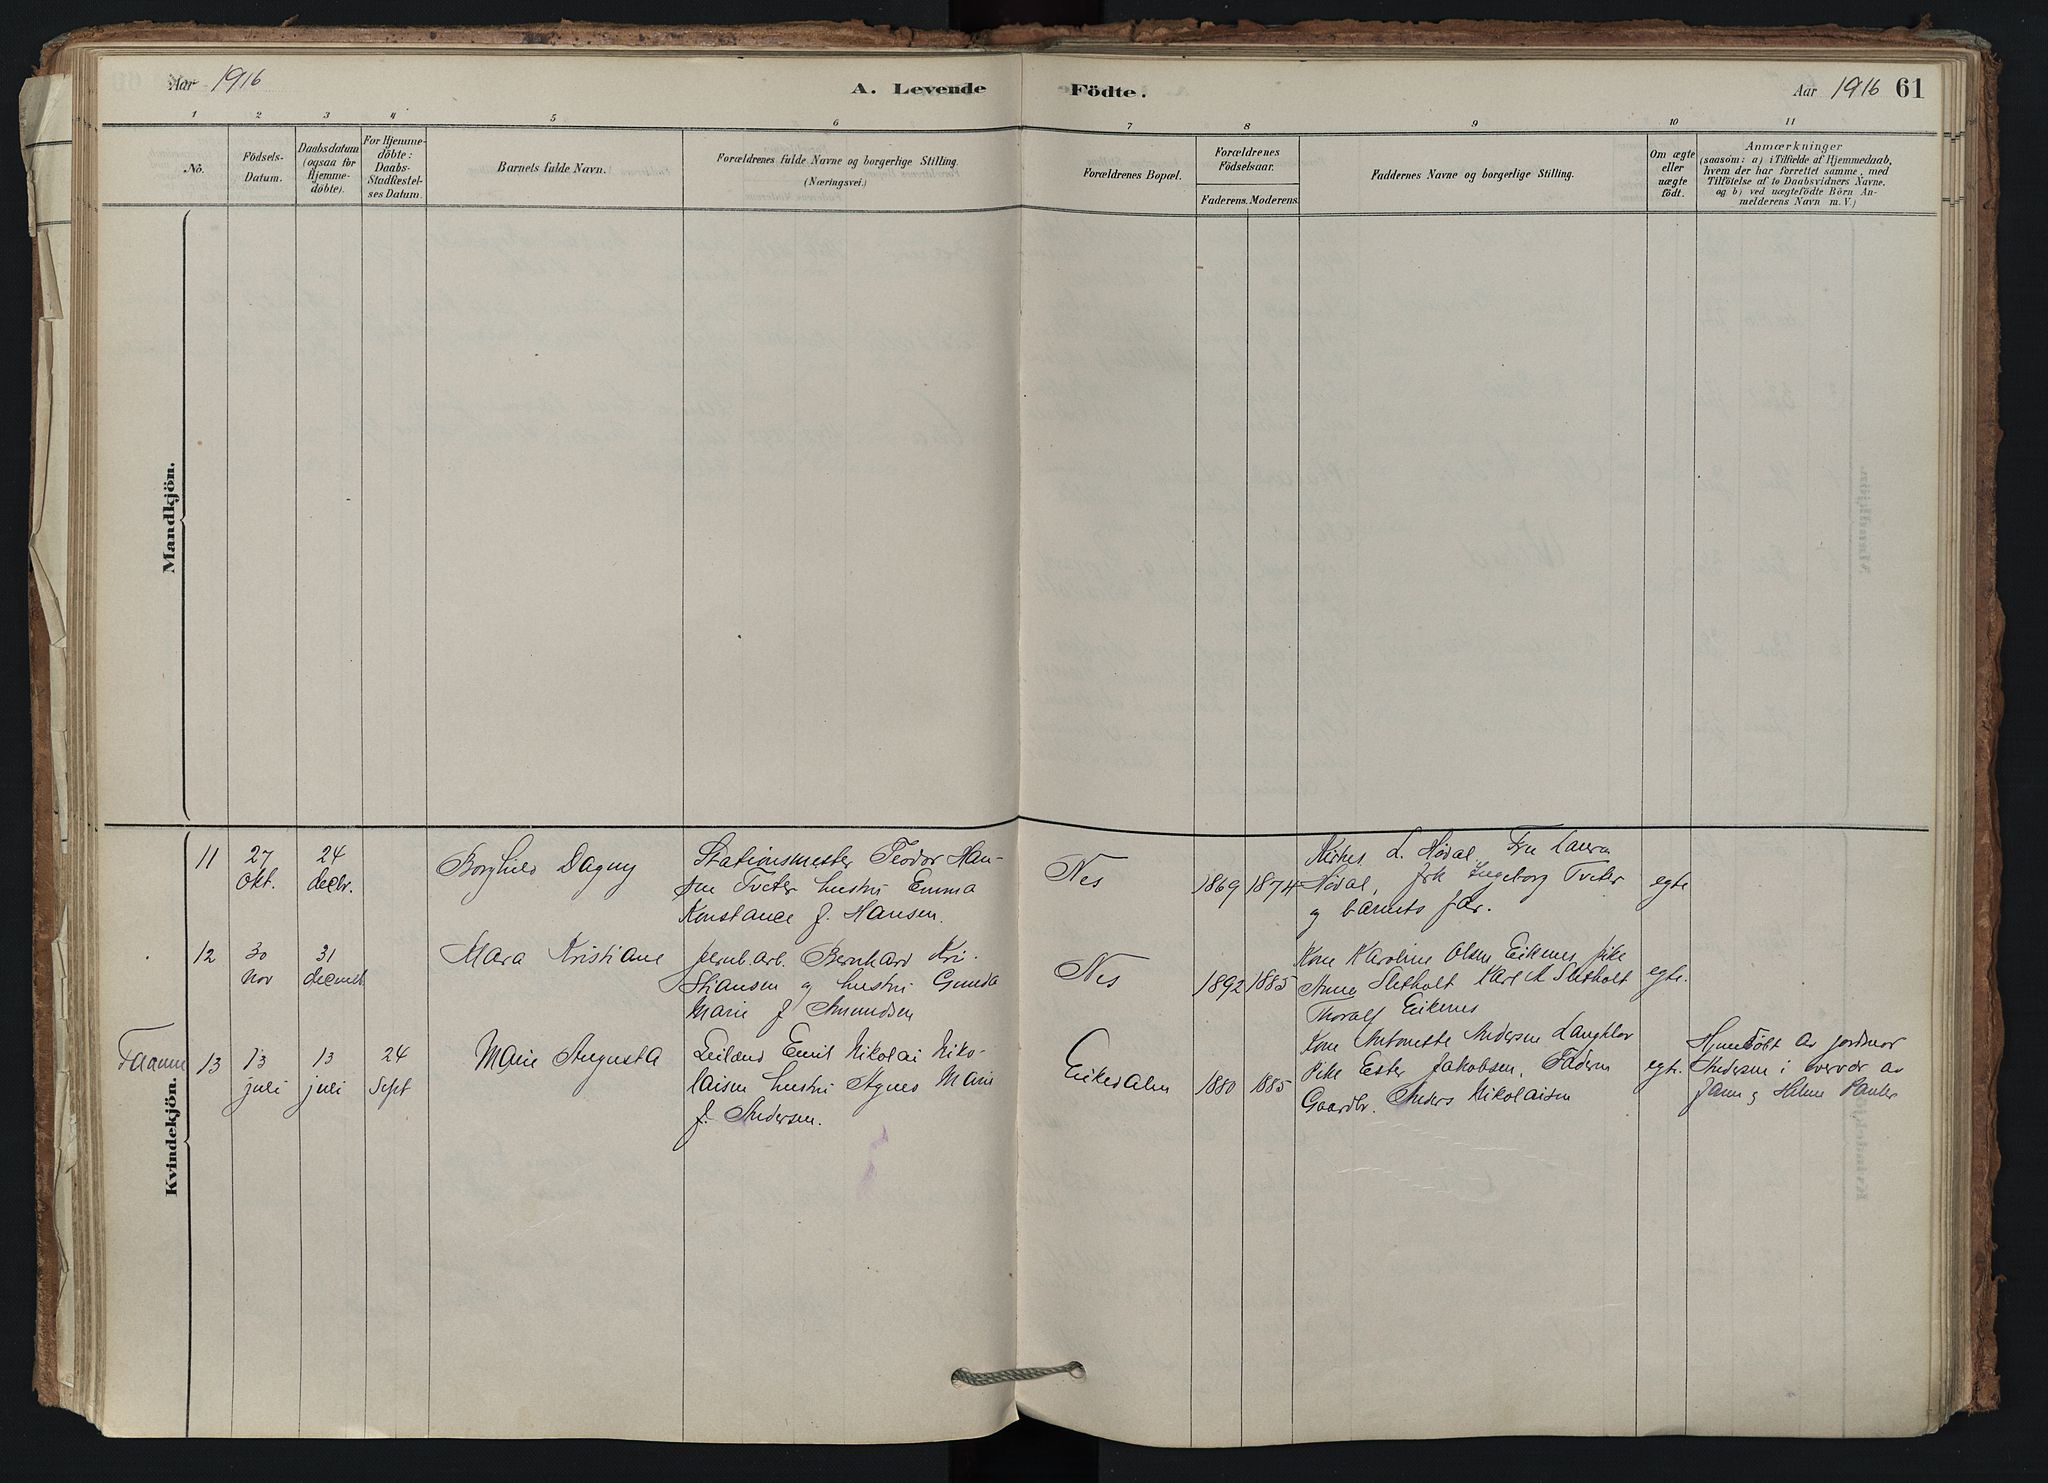 Aar 1916
A. Levende Födte.
Aar 1916 61
1 2 3 4 5 6 7 8 9 10 11
No.
Födsels-
Datum.
Daabsdatum
(ogsaa for
Hjemme-
döbte).
For Hjemme-
döbte:
Daabs-
Stadfæstel-
ses Datum.
Barnets fulde Navn.
Forældrenes fulde Navne og borgerlige Stilling.
(Næringsvei.)
Forældrenes Bopæl.
Forældrenes
Födselsaar.
Faderens. Moderens.
Faddernes Navne og borgerlige Stilling.
Om ægte
eller
uægte
födt.
Anmærkninger
(saasom: a) i Tilfælde af Hjemmedaab,
hvem der har forrettet samme, med
Tilföielse af to Daabsvidners Navne.
og b) ved uægtefödte Börn An-
melderens Navn m. V.)
Mandkjön.
Kvindekjön.
11
27
Okt.
24
decbr.
Borghild Dagny
Stationsmester Teodor Han-
sen Tveter hustru Emma
Konstance f. Hansen.
Nes
1869 1874
L. Nödal, Fru Laura
Nödal, frk Ingeborg Tveter
og barnets far.
egte
12
30
Nov
31
decmb
Mara Kristiane
jernb.arb. Bernhard Kri-
stiansen og hustru Gunda
Marie f Amundsen
Nes
1892 1885
Kone Karoline Olsen Eikenes pike
Anna Sletholt Karl A Sletholt
Thoralf Eikenes
egte.
13
13
juli
13
juli
24
Sept
Marie Augusta
Leilænd Emil Nikolai Niko-
laisen hustru Agnes Marie
f. Andersen.
Eikedalen
1880 1885
Kone Antonette Andersen
Pike Ester Jakobsen,
Gaardbr. Anders Nikolaisen
egte.
Hjemdöbt av jordmor
Andersen i overvær av